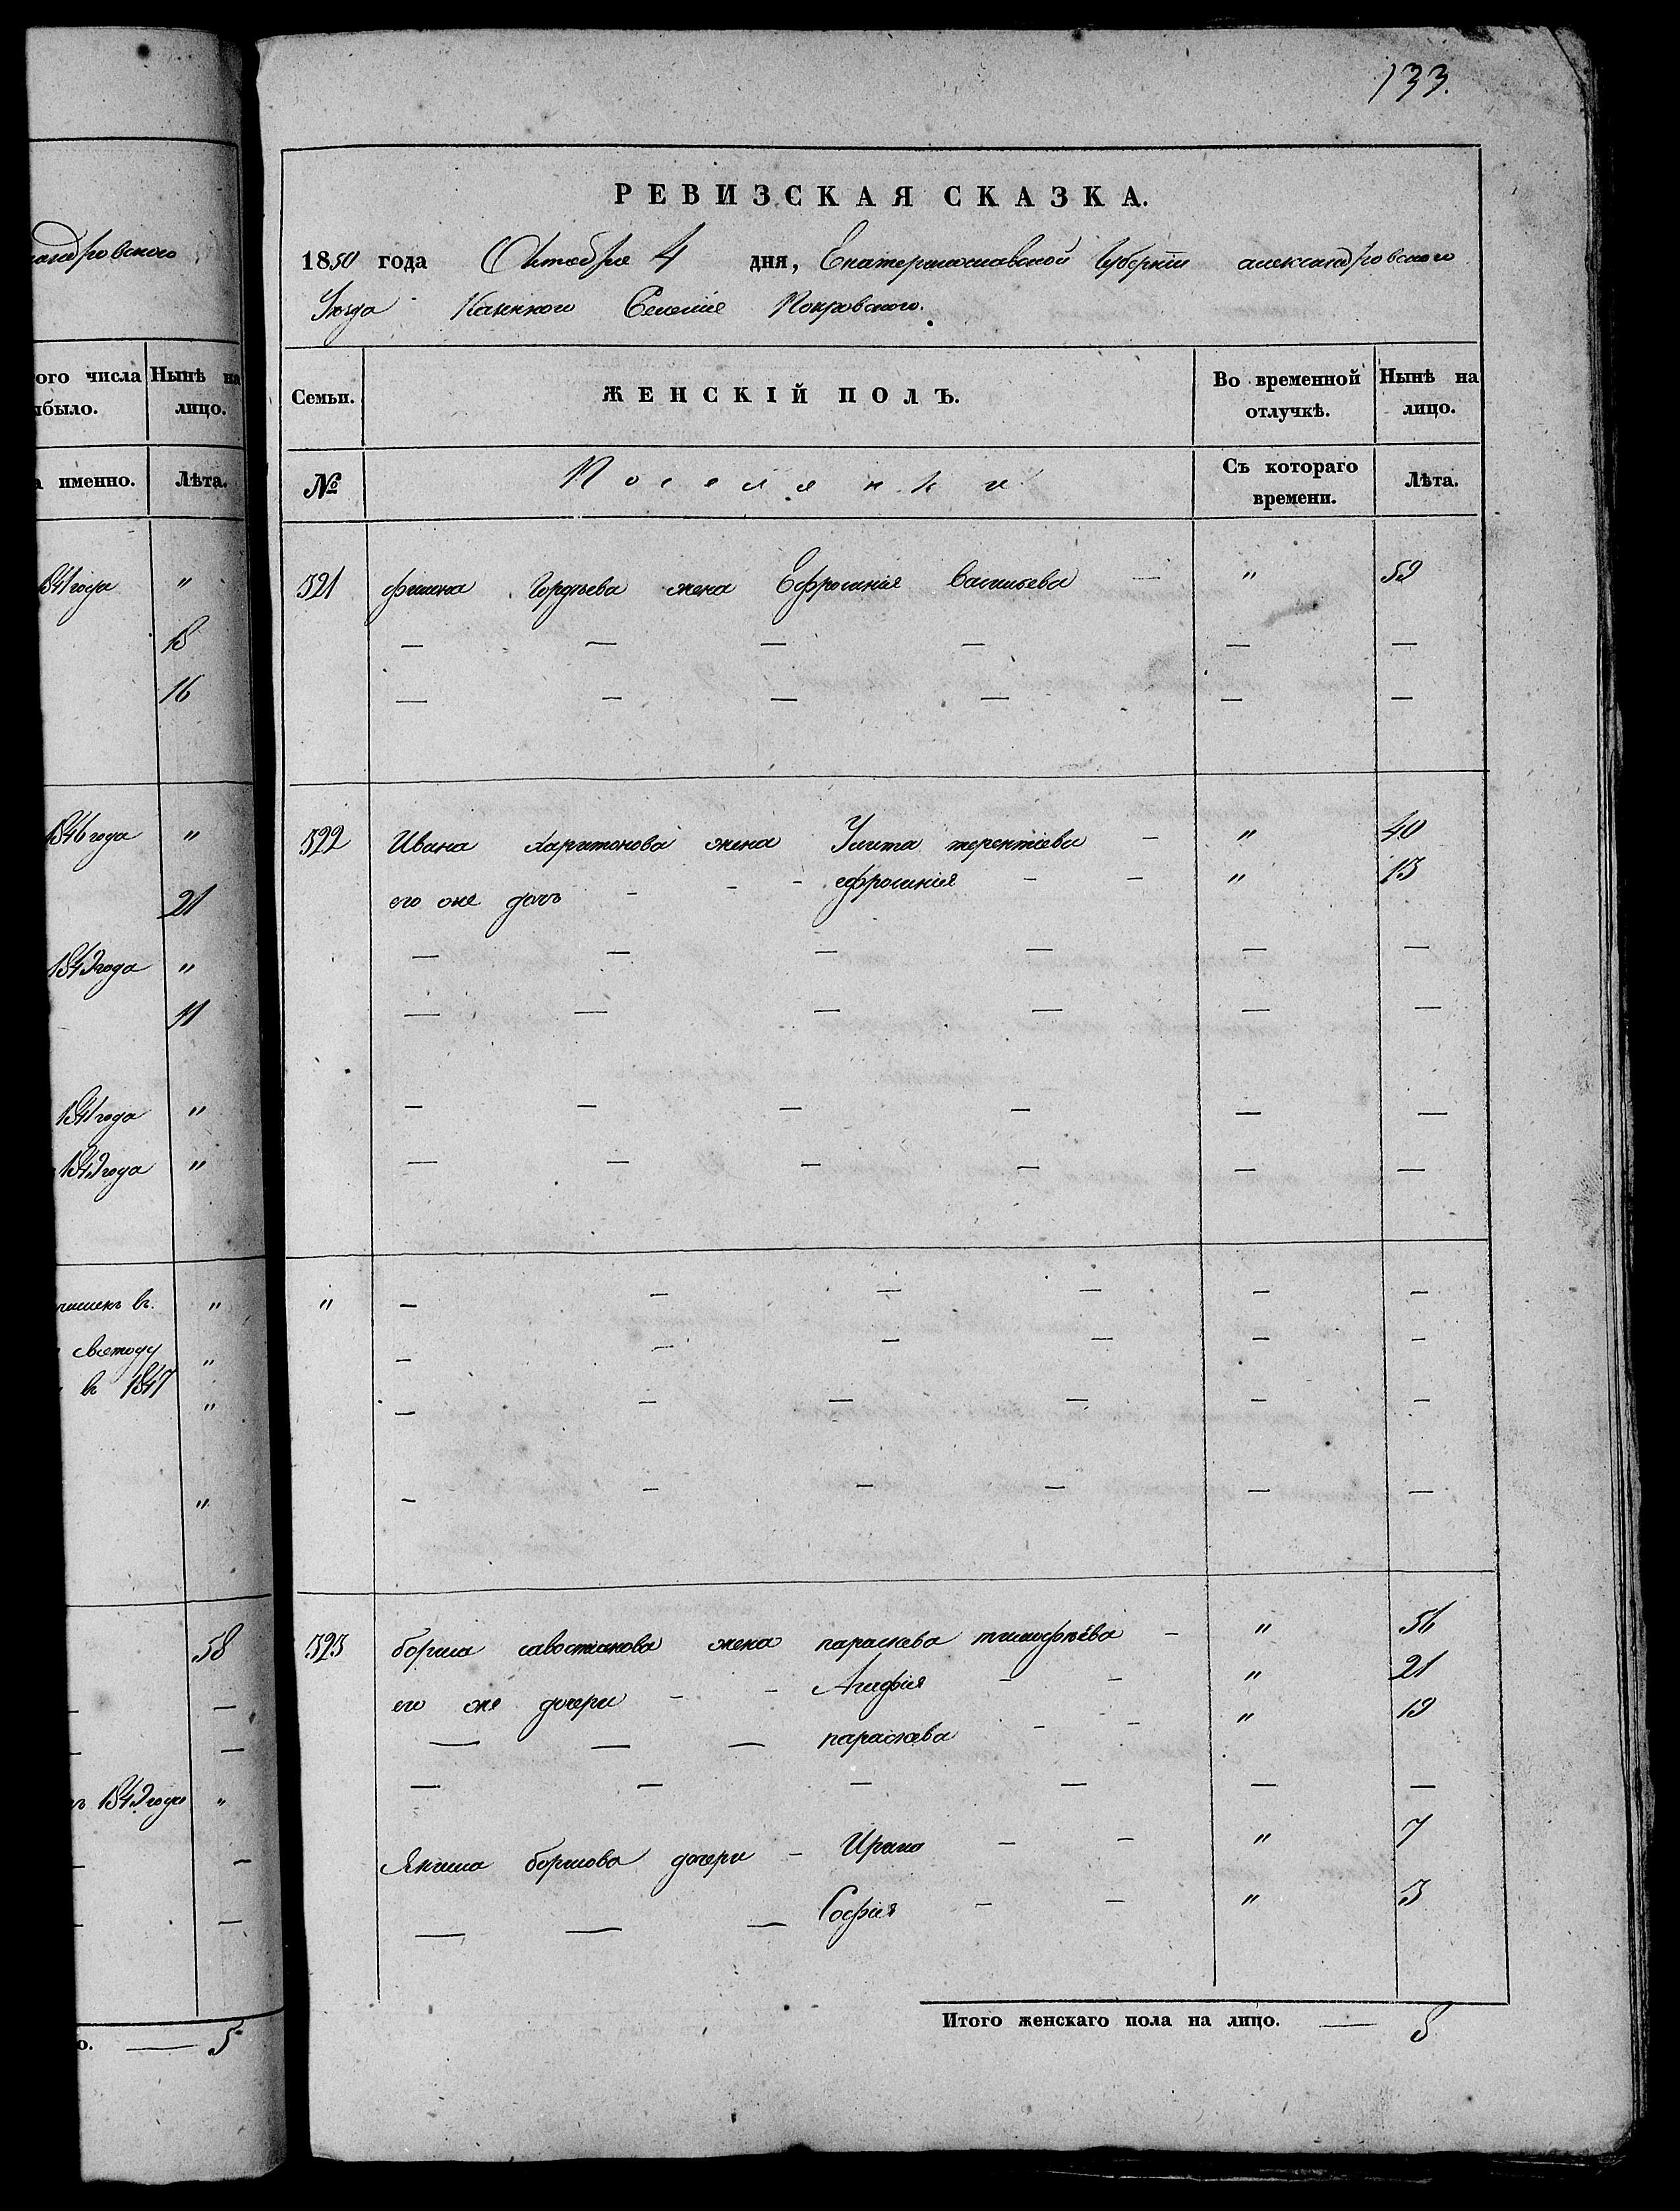 133.
андровского
РЕВИЗСКАЯ СКАЗКА.
1850 года Октября 4 дня, Екатеринославской Губернии александровского
Уезда Казенного Селения Покровского.
ого числа Нынѣ на
было. лицо.
Семьи. ЖЕНСКІЙ ПОЛЪ. Во временной отлучкѣ. Нынѣ на лицо.
именно. Лѣта.
№ Поселянки Съ котораго времени. Лѣта.
1841 года "
18
16
321 Гордѣева жена Ефросиния Васильева — " 59
— — — — — —
— — — — — —
1846 года "
21
1849 года "
11
1841 года "
1849 года "
322 Ивана Харитонова жена Улита терентиева — " 40
его же дочь - - - ефросиния - — " 13
— — — — — —
— — — — — —
— — — — — —
— — — — — —
въ. "
"
въ 1847 "
"
" — — — — — —
— — — — — —
— — — — — —
— — — — — —
58
—
—
1849 года "
—
—
323 бориса савостянова жена параскева тимофѣева - " 56
его же дочери - - Агафия - - " 21
— — — параскева - - " 19
— — — — — —
Якима борисова дочери - Ирина — — " 7
— — — София - — " 3
о. — 5
Итого женскаго пола на лицо. — 8